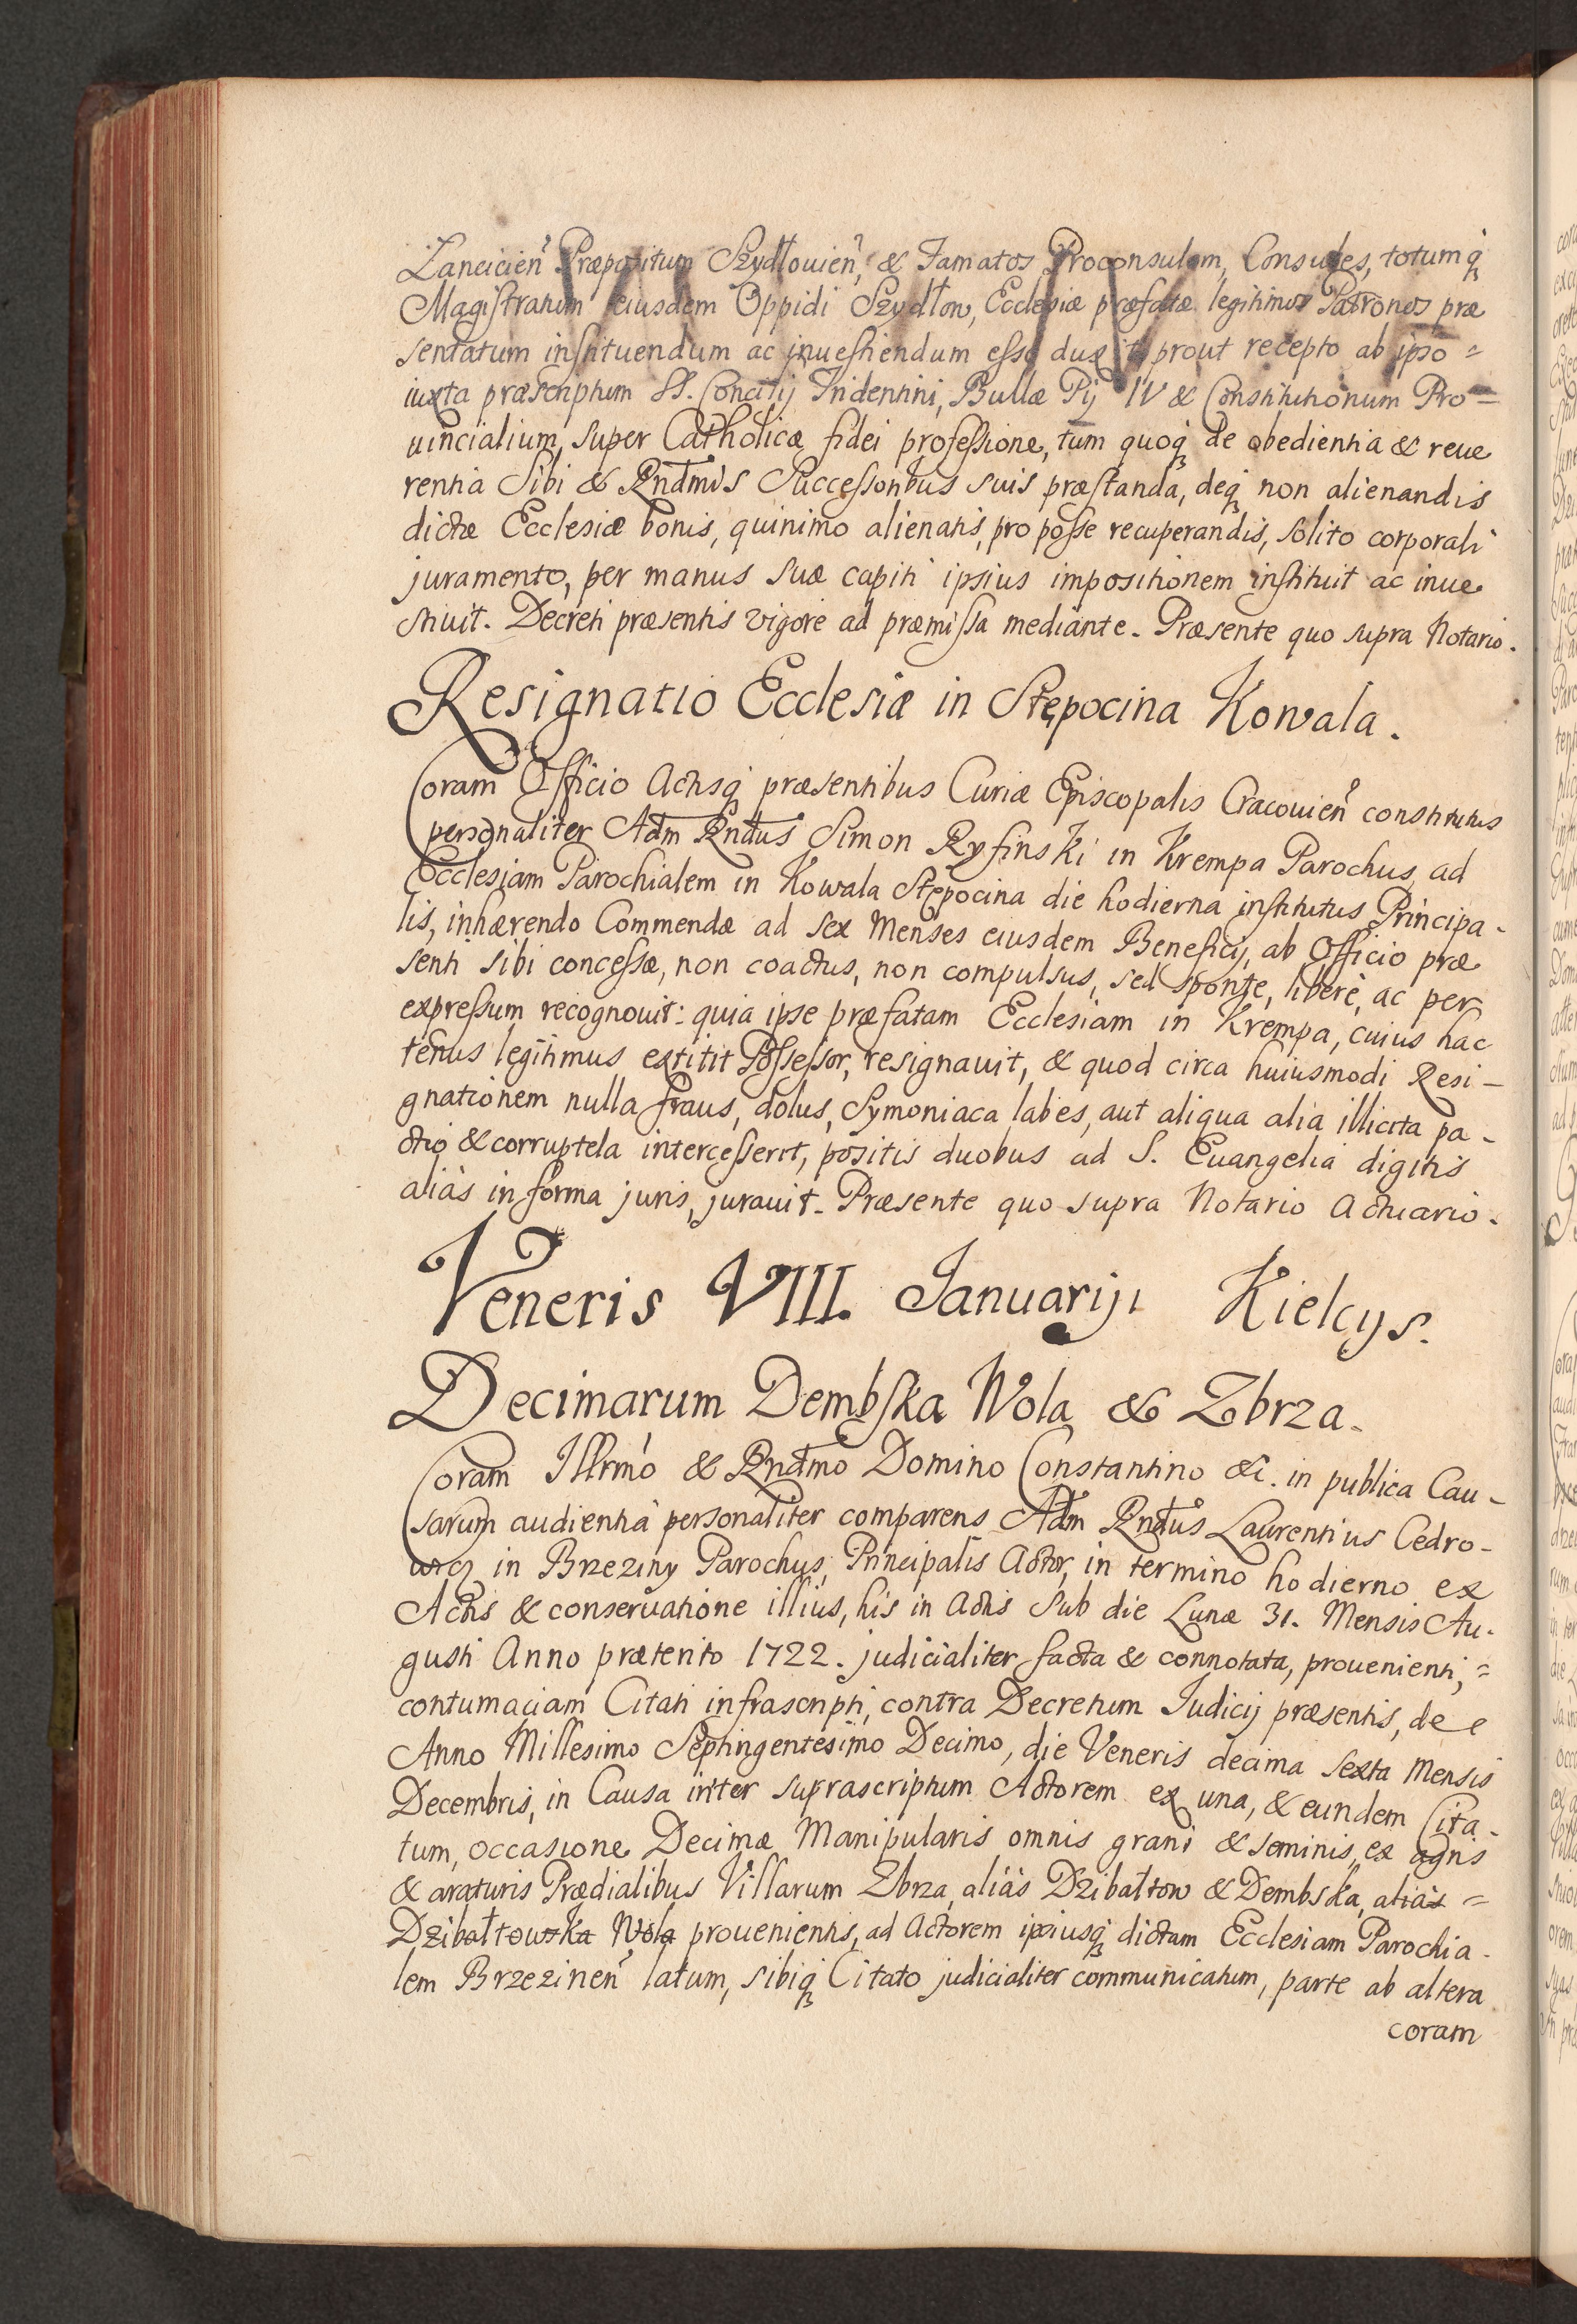 Lancicien̄ Præpositum Szydłouien̄, & Famatos Proconsulem, Consules, totumq̨
Magistratum eiusdem Oppidi Szydłow, Ecclesiæ præfatæ legitimos Patronos præ
sentatum instituendum ac inuestiendum esse duxit, prout recepto ab ipso =
iuxta præscriptum SS. Concilij Tridentini, Bullæ Pij IV & Constitutionum Pro =
uincialium, super Catholicæ fidei professione, tum quoq̨ de obedientia & reue
rentia Sibi & Rndmis Successoribus suis præstanda, deq̨ non alienandis
dictæ Ecclesiæ bonis, quinimo alienatis, pro posse recuperandis, solito corporali
juramento, per manus suæ capiti ipsius impositionem instituit ac inue
stiuit. Decreti præsentis vigore ad præmissa mediante. Præsente quo supra Notario.
Resignatio Ecclesiæ in Stępocina Kowala.
Coram Officio Actisq̨ præsentibus Curiæ Episcopalis Cracouien̄ constitutus
personaliter Adm Rndus Simon Ryfinski in Krempa Parochus, ad
Ecclesiam Parochialem in Kowala Stępocina die hodierna institutus Principa-
lis, inhærendo Commendæ ad sex Menses eiusdem Beneficij, ab Officio præ
senti sibi concessæ, non coactus, non compulsus, sed sponte, libere, ac per
expressum recognouit: quia ipse præfatam Ecclesiam in Krempa, cuius hac
tenus legitimus extitit Possessor, resignauit, & quod circa huiusmodi Resi-
gnationem nulla fraus, dolus, Symoniaca labes, aut aliqua alia illicita pa-
ctio & corruptela intercesserit, positis duobus ad S. Euangelia digitis
aliàs in forma juris, jurauit. Præsente quo supra Notario Actuario.
Veneris VIII. Januarij Kielcijs.
Decimarum Dembska Wola & Zbrza.
Coram Illrmo & Rndmo Domino Constantino &c. in publica Cau-
sarum audientia personaliter comparens Adm Rndus Laurentius Cedro-
wicz in Brzeziny Parochus, Principalis Actor, in termino hodierno ex
Actis & conseruatione illius, his in Actis sub die Lunæ 31. Mensis Au-
gusti Anno præterito 1722. judicialiter facta & connotata, prouenienti, =
contumaciam Citati infrascripti, contra Decretum Judicij præsentis, de
Anno Millesimo Septingentesimo Decimo, die Veneris decima sexta Mensis
Decembris, in Causa inter suprascriptum Actorem ex una, & eundem Cita-
tum, occasione Decimæ Manipularis omnis grani & seminis, ex agris
& araturis Prædialibus Villarum Zbrza, aliàs Dzibałtow & Dembska, aliàs =
Dzibałtowska Wola prouenientis, ad Actorem ipsiusq̨ dictam Ecclesiam Parochia-
lem Brzezinen̄ latum, sibiq̨ Citato judicialiter communicatum, parte ab altera
coram